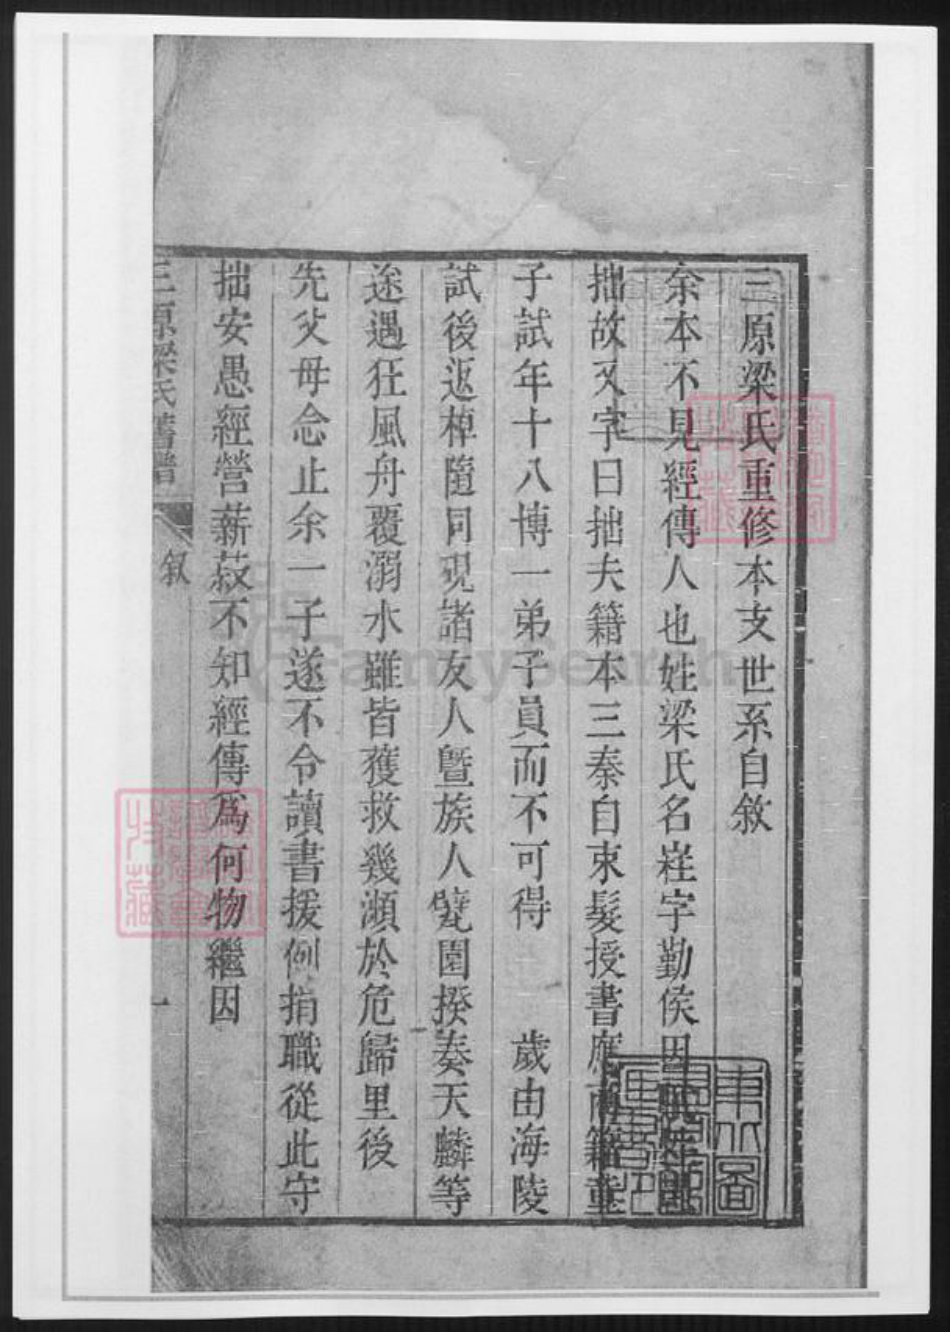 三原梁氏重修本支世系自敘
余本不見經傳人也姓梁氏名嵀字勤侯因
拙故又字曰拙夫籍本三秦自束髮授書應商籍童
子試年十八博一弟子員而不可得　歲由海陵
試後返棹隨同硯諸友人曁族人甓園揆奏天麟等
途遇狂風舟覆溺水雖皆獲救幾瀕於危歸里後
先父母念止余一子遂不令讀書援例捐職從此守
拙安愚經營薪菽不知經傳爲何物繼因
三原梁氏舊譜
叙
一
FamilySearch